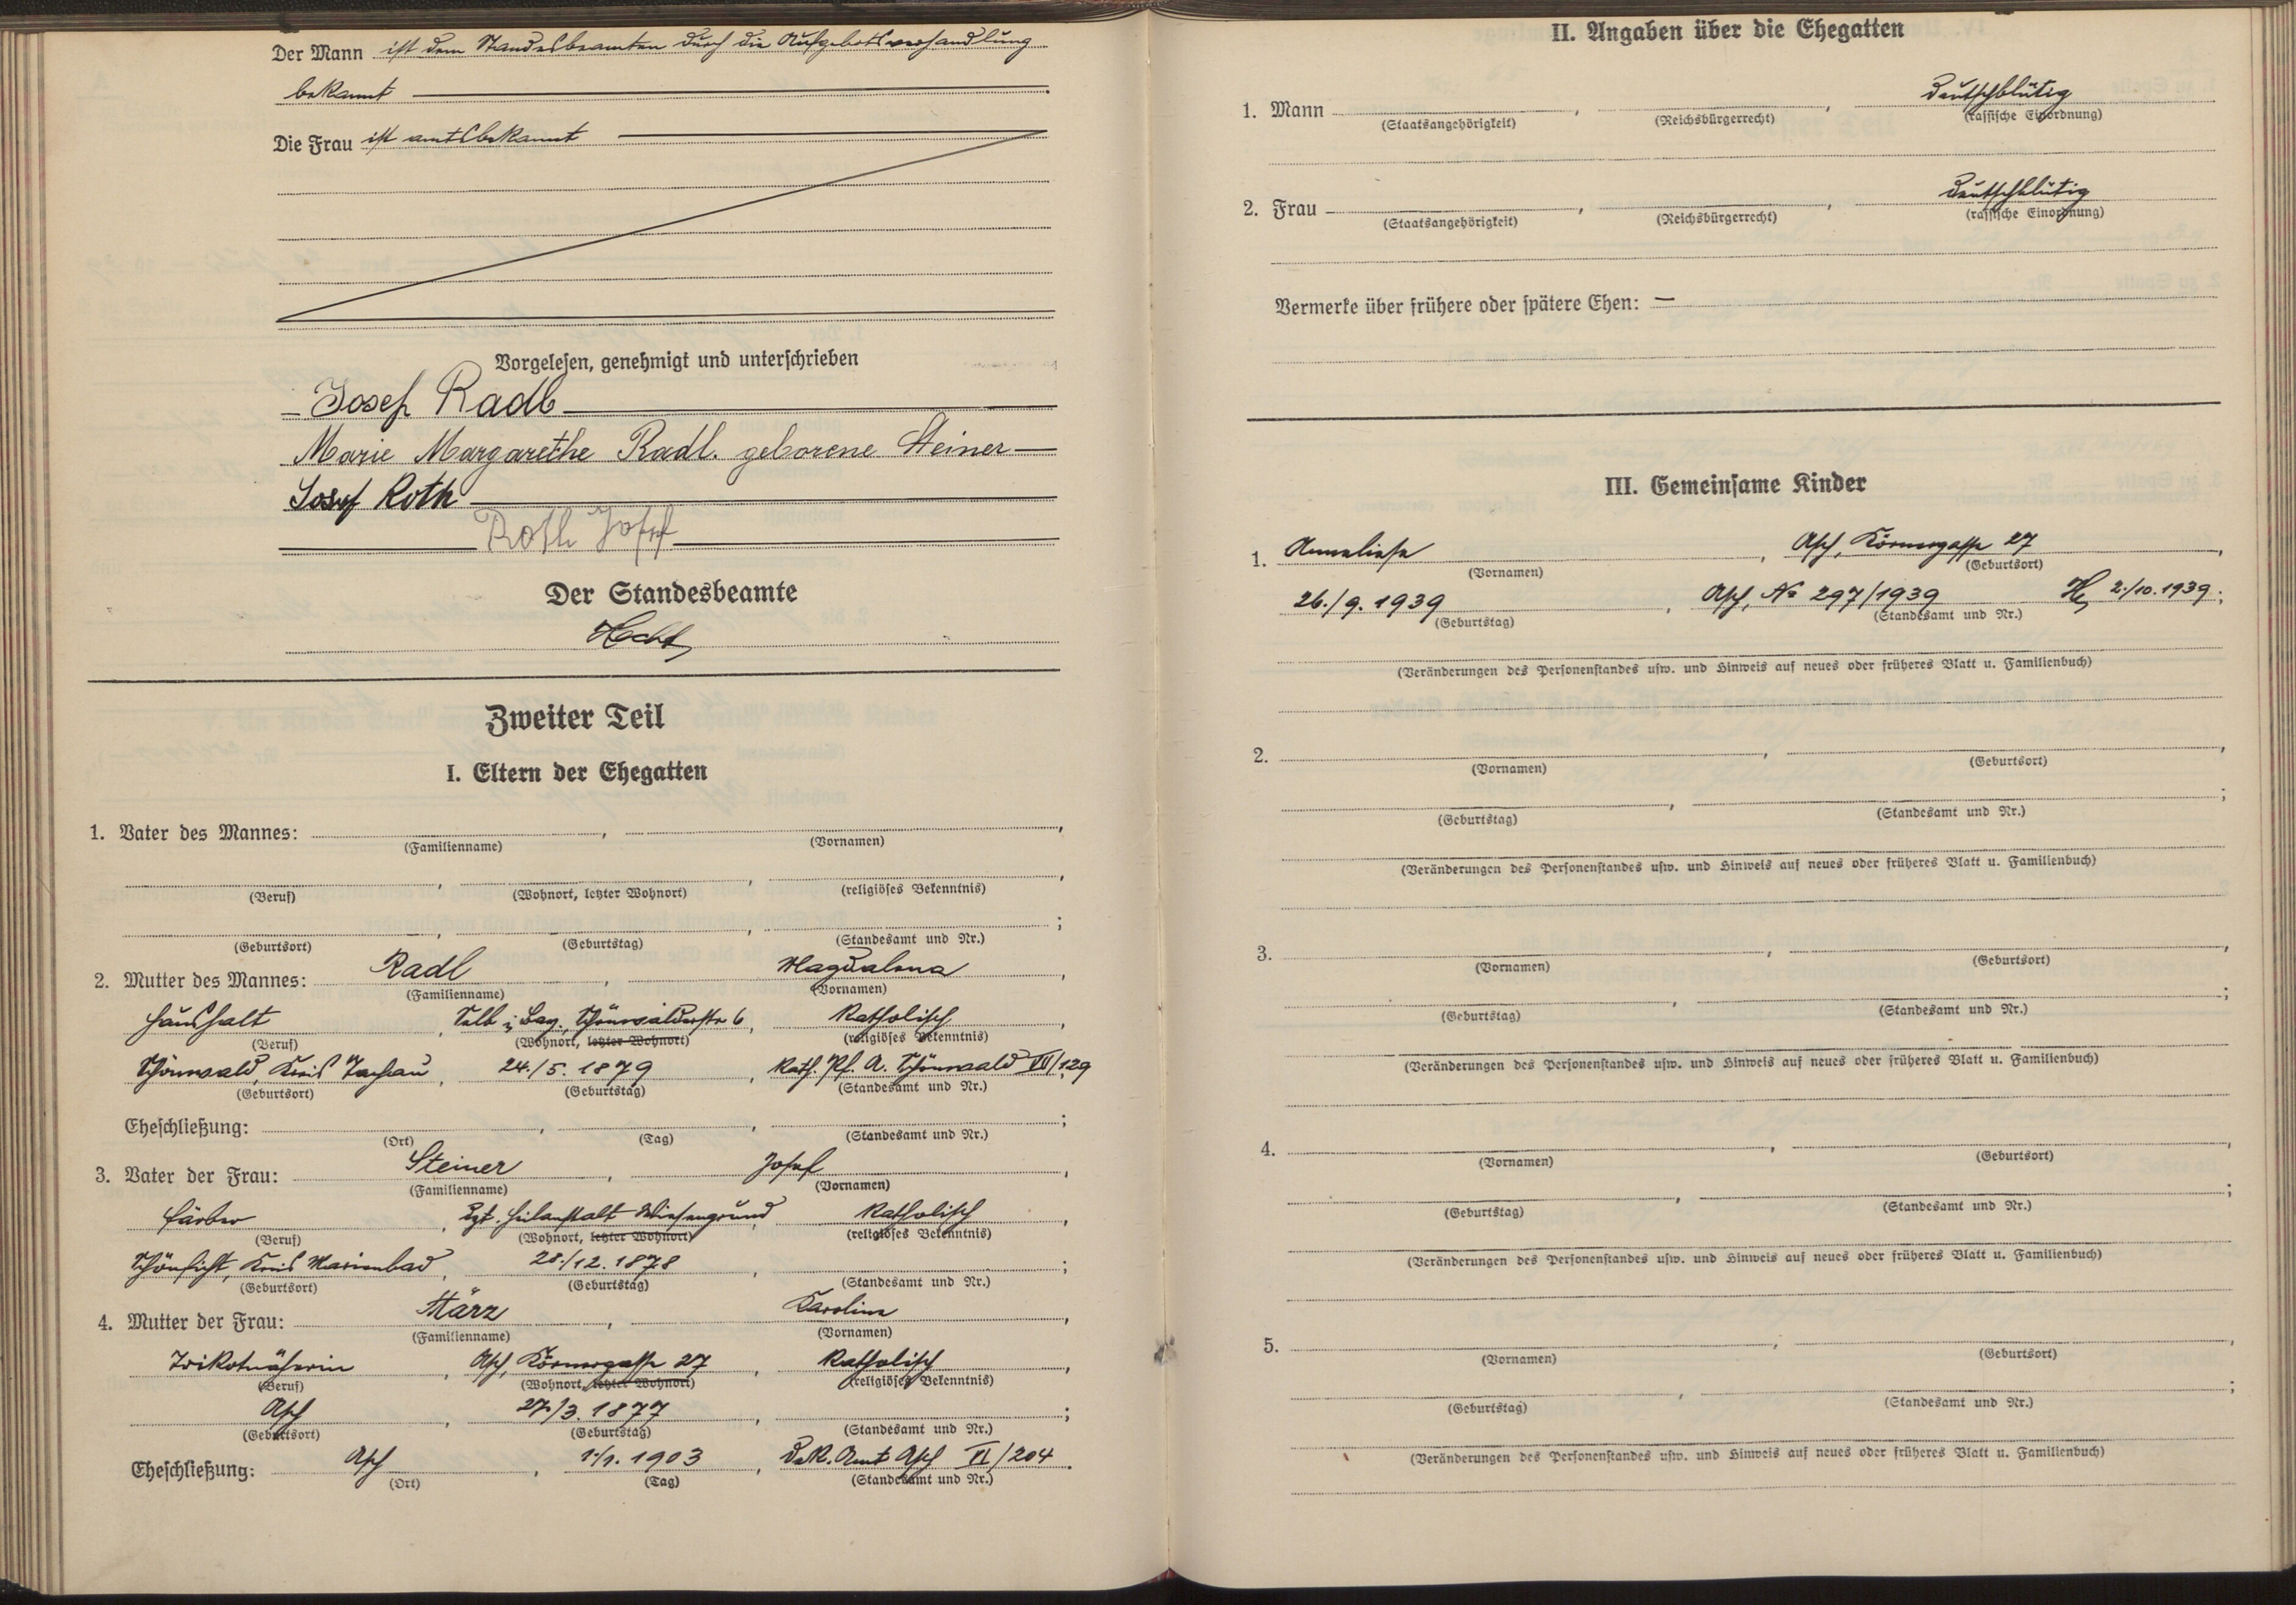 Der Mann ist dem Standesbeamten durch die Aufgebotsverhandlung
bekannt
Die Frau ist amtsbekannt
Vorgelesen, genehmigt und unterschrieben
Josef Radl
Marie Margarethe Radl. geborene Steiner
Josef Roth
Roth Josef
Der Standesbeamte
Hecht
Zweiter Teil
I. Eltern der Ehegatten
1. Vater des Mannes: , ,
(Familienname) (Vornamen)
, , ,
(Beruf) (Wohnort, letzter Wohnort) (religiöses Bekenntnis)
, , ;
(Geburtsort) (Geburtstag) (Standesamt und Nr.)
2. Mutter des Mannes: Radl , Magdalena ,
(Familienname) (Vornamen)
Haushalt , Selb i. Bay., Schönwalderstr 6 , Katholisch ,
(Beruf) (Wohnort, letzter Wohnort) (religiöses Bekenntnis)
Schönwald, Kreis Tachau , 24./5. 1879 , Kath. Pf. A. Schönwald VII/129
(Geburtsort) (Geburtstag) (Standesamt und Nr.)
Eheschließung: , , ;
(Ort) (Tag) (Standesamt und Nr.)
3. Vater der Frau: Steiner , Josef ,
(Familienname) (Vornamen)
Färber , Zzt. Heilanstalt Wiesengrund , Katholisch ,
(Beruf) (Wohnort, letzter Wohnort) (religiöses Bekenntnis)
Schönficht, Kreis Marienbad , 28./12. 1878 , ;
(Geburtsort) (Geburtstag) (Standesamt und Nr.)
4. Mutter der Frau: März , Karoline ,
(Familienname) (Vornamen)
Trikotnäherin , Asch, Körnergasse 27 , Katholisch ,
(Beruf) (Wohnort, letzter Wohnort) (religiöses Bekenntnis)
Asch , 27./3. 1877 , ;
(Geburtsort) (Geburtstag) (Standesamt und Nr.)
Eheschließung: Asch , 1903 , Dek. Amt Asch VI/204 .
(Ort) (Tag) (Standesamt und Nr.)
II. Angaben über die Ehegatten
1. Mann , , deutschblütig
(Staatsangehörigkeit) (Reichsbürgerrecht) (rassische Einordnung)
2. Frau , , deutschblütig
(Staatsangehörigkeit) (Reichsbürgerrecht) (rassische Einordnung)
Vermerke über frühere oder spätere Ehen: —
III. Gemeinsame Kinder
1. Anneliese , Asch, Körnergasse 27 ,
(Vornamen) (Geburtsort)
26./9. 1939 , Asch, No 297/1939 2./10. 1939. ;
(Geburtstag) (Standesamt und Nr.)
(Veränderungen des Personenstandes usw. und Hinweis auf neues oder früheres Blatt u. Familienbuch)
2. , ,
(Vornamen) (Geburtsort)
, ;
(Geburtstag) (Standesamt und Nr.)
(Veränderungen des Personenstandes usw. und Hinweis auf neues oder früheres Blatt u. Familienbuch)
3. , ,
(Vornamen) (Geburtsort)
, ;
(Geburtstag) (Standesamt und Nr.)
(Veränderungen des Personenstandes usw. und Hinweis auf neues oder früheres Blatt u. Familienbuch)
4. , ,
(Vornamen) (Geburtsort)
, ;
(Geburtstag) (Standesamt und Nr.)
(Veränderungen des Personenstandes usw. und Hinweis auf neues oder früheres Blatt u. Familienbuch)
5. , ,
(Vornamen) (Geburtsort)
, ;
(Geburtstag) (Standesamt und Nr.)
(Veränderungen des Personenstandes usw. und Hinweis auf neues oder früheres Blatt u. Familienbuch)